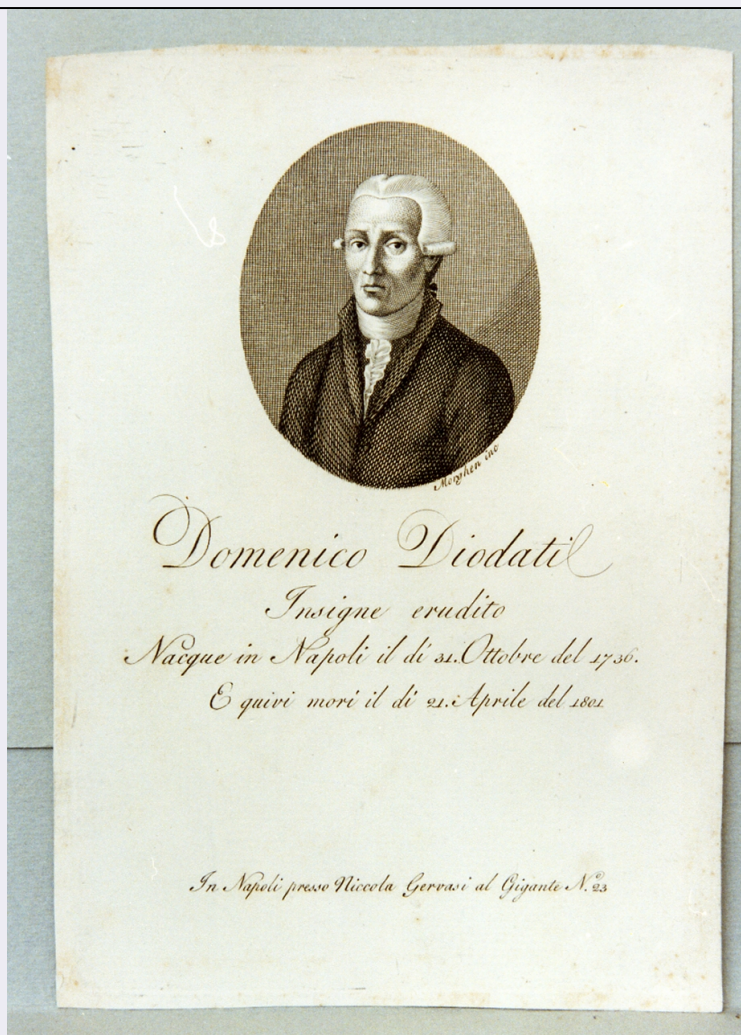 Morghen inc
Domenico Diodati
Insigne erudito
Nacque in Napoli il dí 31. Ottobre del 1736.
E quivi morí il dí 21. Aprile del 1801
In Napoli presso Niccola Gervasi al Gigante N.º 23